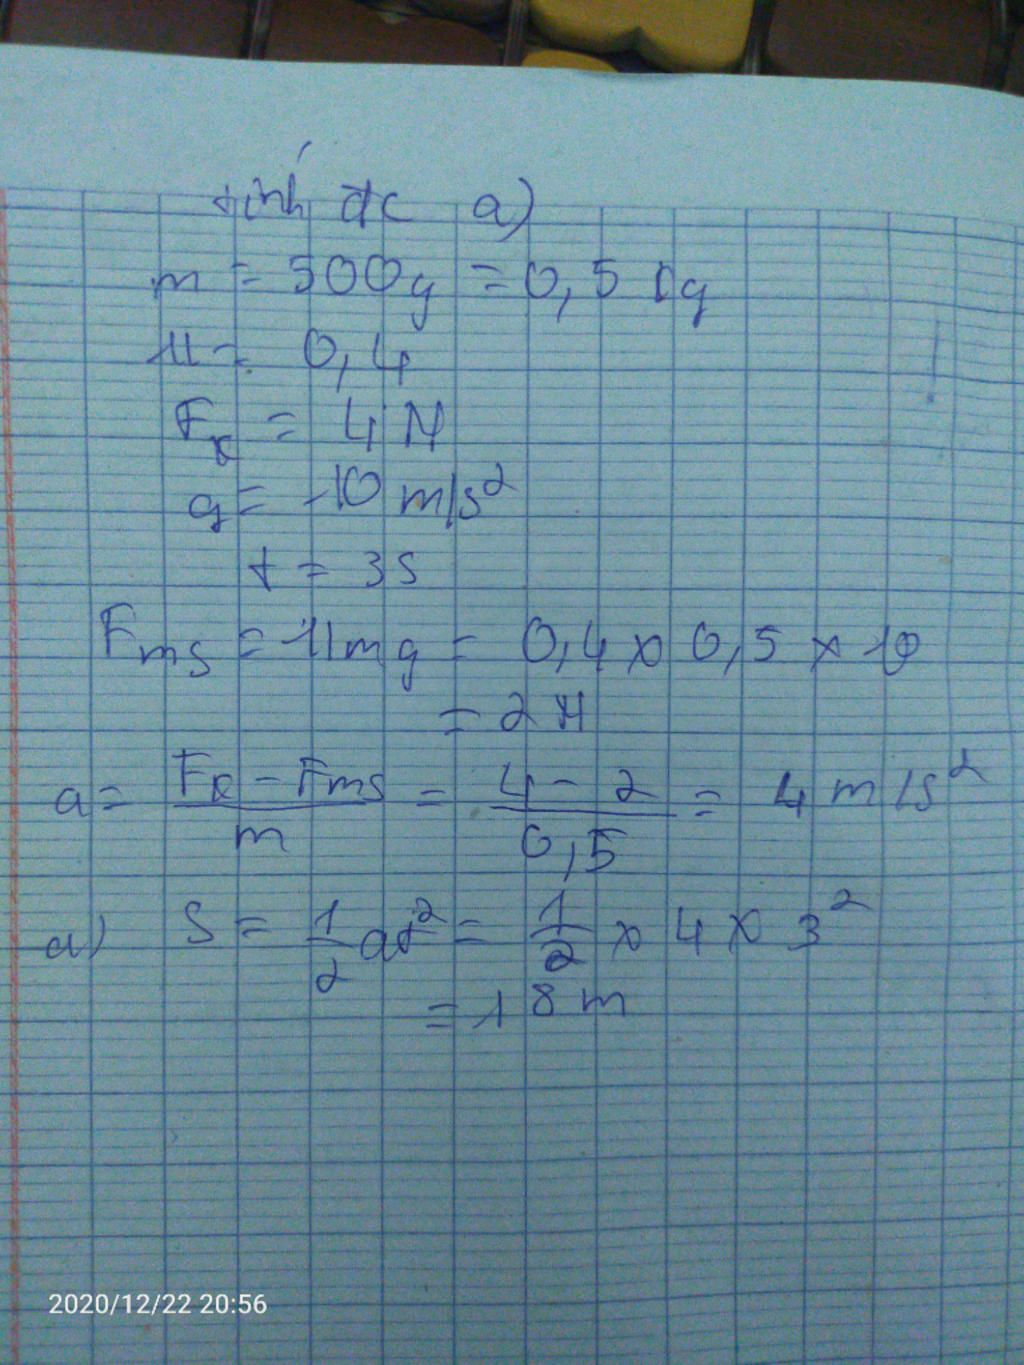 tính đc a)
m = 500g = 0,5 kg
μ = 0,4
Fk = 4 N
g = 10 m/s²
t = 3s
Fms = μmg = 0,4 x 0,5 x 10
= 2 N
a = (Fk - Fms)/m = (4 - 2)/0,5 = 4 m/s²
a) S = 1/2 at² = 1/2 x 4 x 3²
= 18 m
2020/12/22 20:56